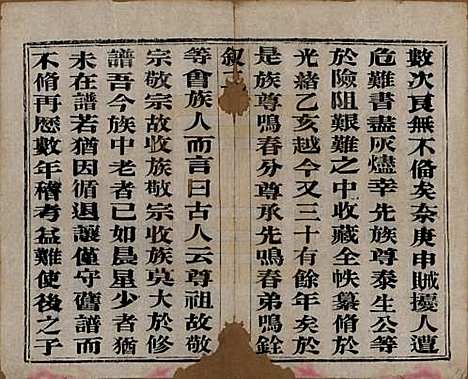 數次良無不偹矣奈庚申賊擾人遭
危難書盡灰燼幸先族尊泰生公等
於險阻艱難之中收藏全帙纂脩於
光緒乙亥越今又三十有餘年矣於
是族尊鳴春分尊承先鳴春弟鳴銓
叙
等會族人而言曰古人云尊祖故敬
宗敬宗故收族敬宗收族莫大於修
譜吾今族中老者已如晨星少者猶
未在譜若猶因循退讓僅守舊譜而
不脩再歷數年稽考益難使後之子